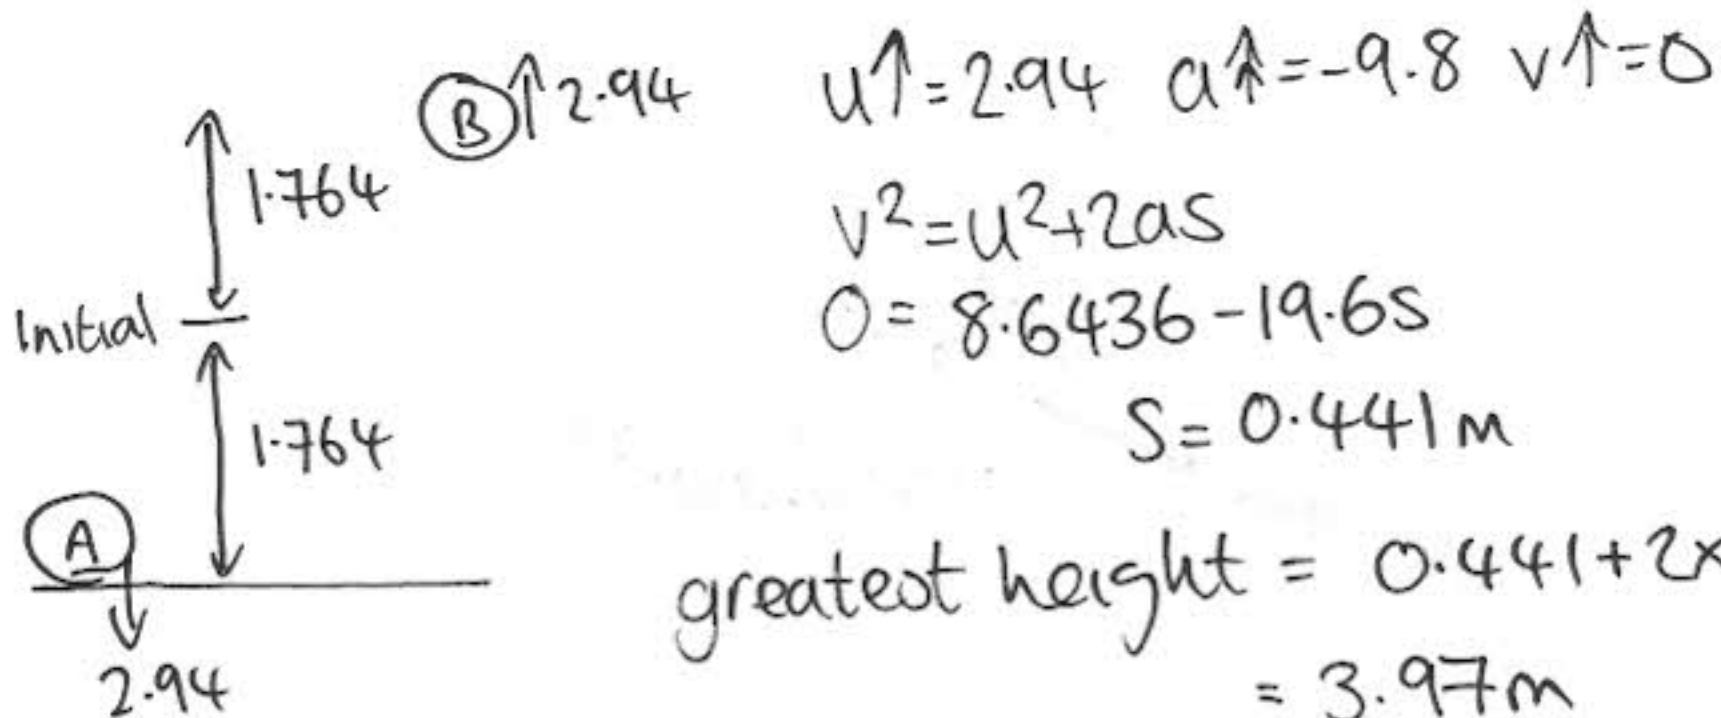 B ↑ 2.94
1.764
Initial
1.764
A
2.94
u↑ = 2.94 a↑ = -9.8 v↑ = 0
v² = u² + 2as
0 = 8.6436 - 19.6s
s = 0.441m
greatest height = 0.441 + 2x
= 3.97m